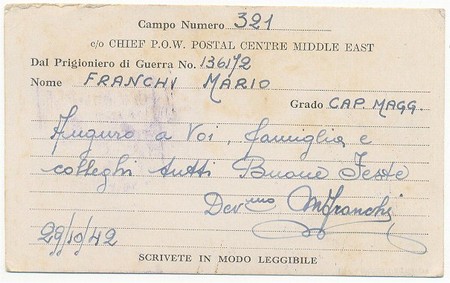 Campo Numero 321
c/o CHIEF P.O.W. POSTAL CENTRE MIDDLE EAST
Dal Prigioniero di Guerra No. 136172
Nome FRANCHI MARIO
Grado CAP. MAGG.
Auguro a Voi, famiglia e
colleghi tutti Buone Feste
Dev.mo MFranchi
29/10/42
SCRIVETE IN MODO LEGGIBILE